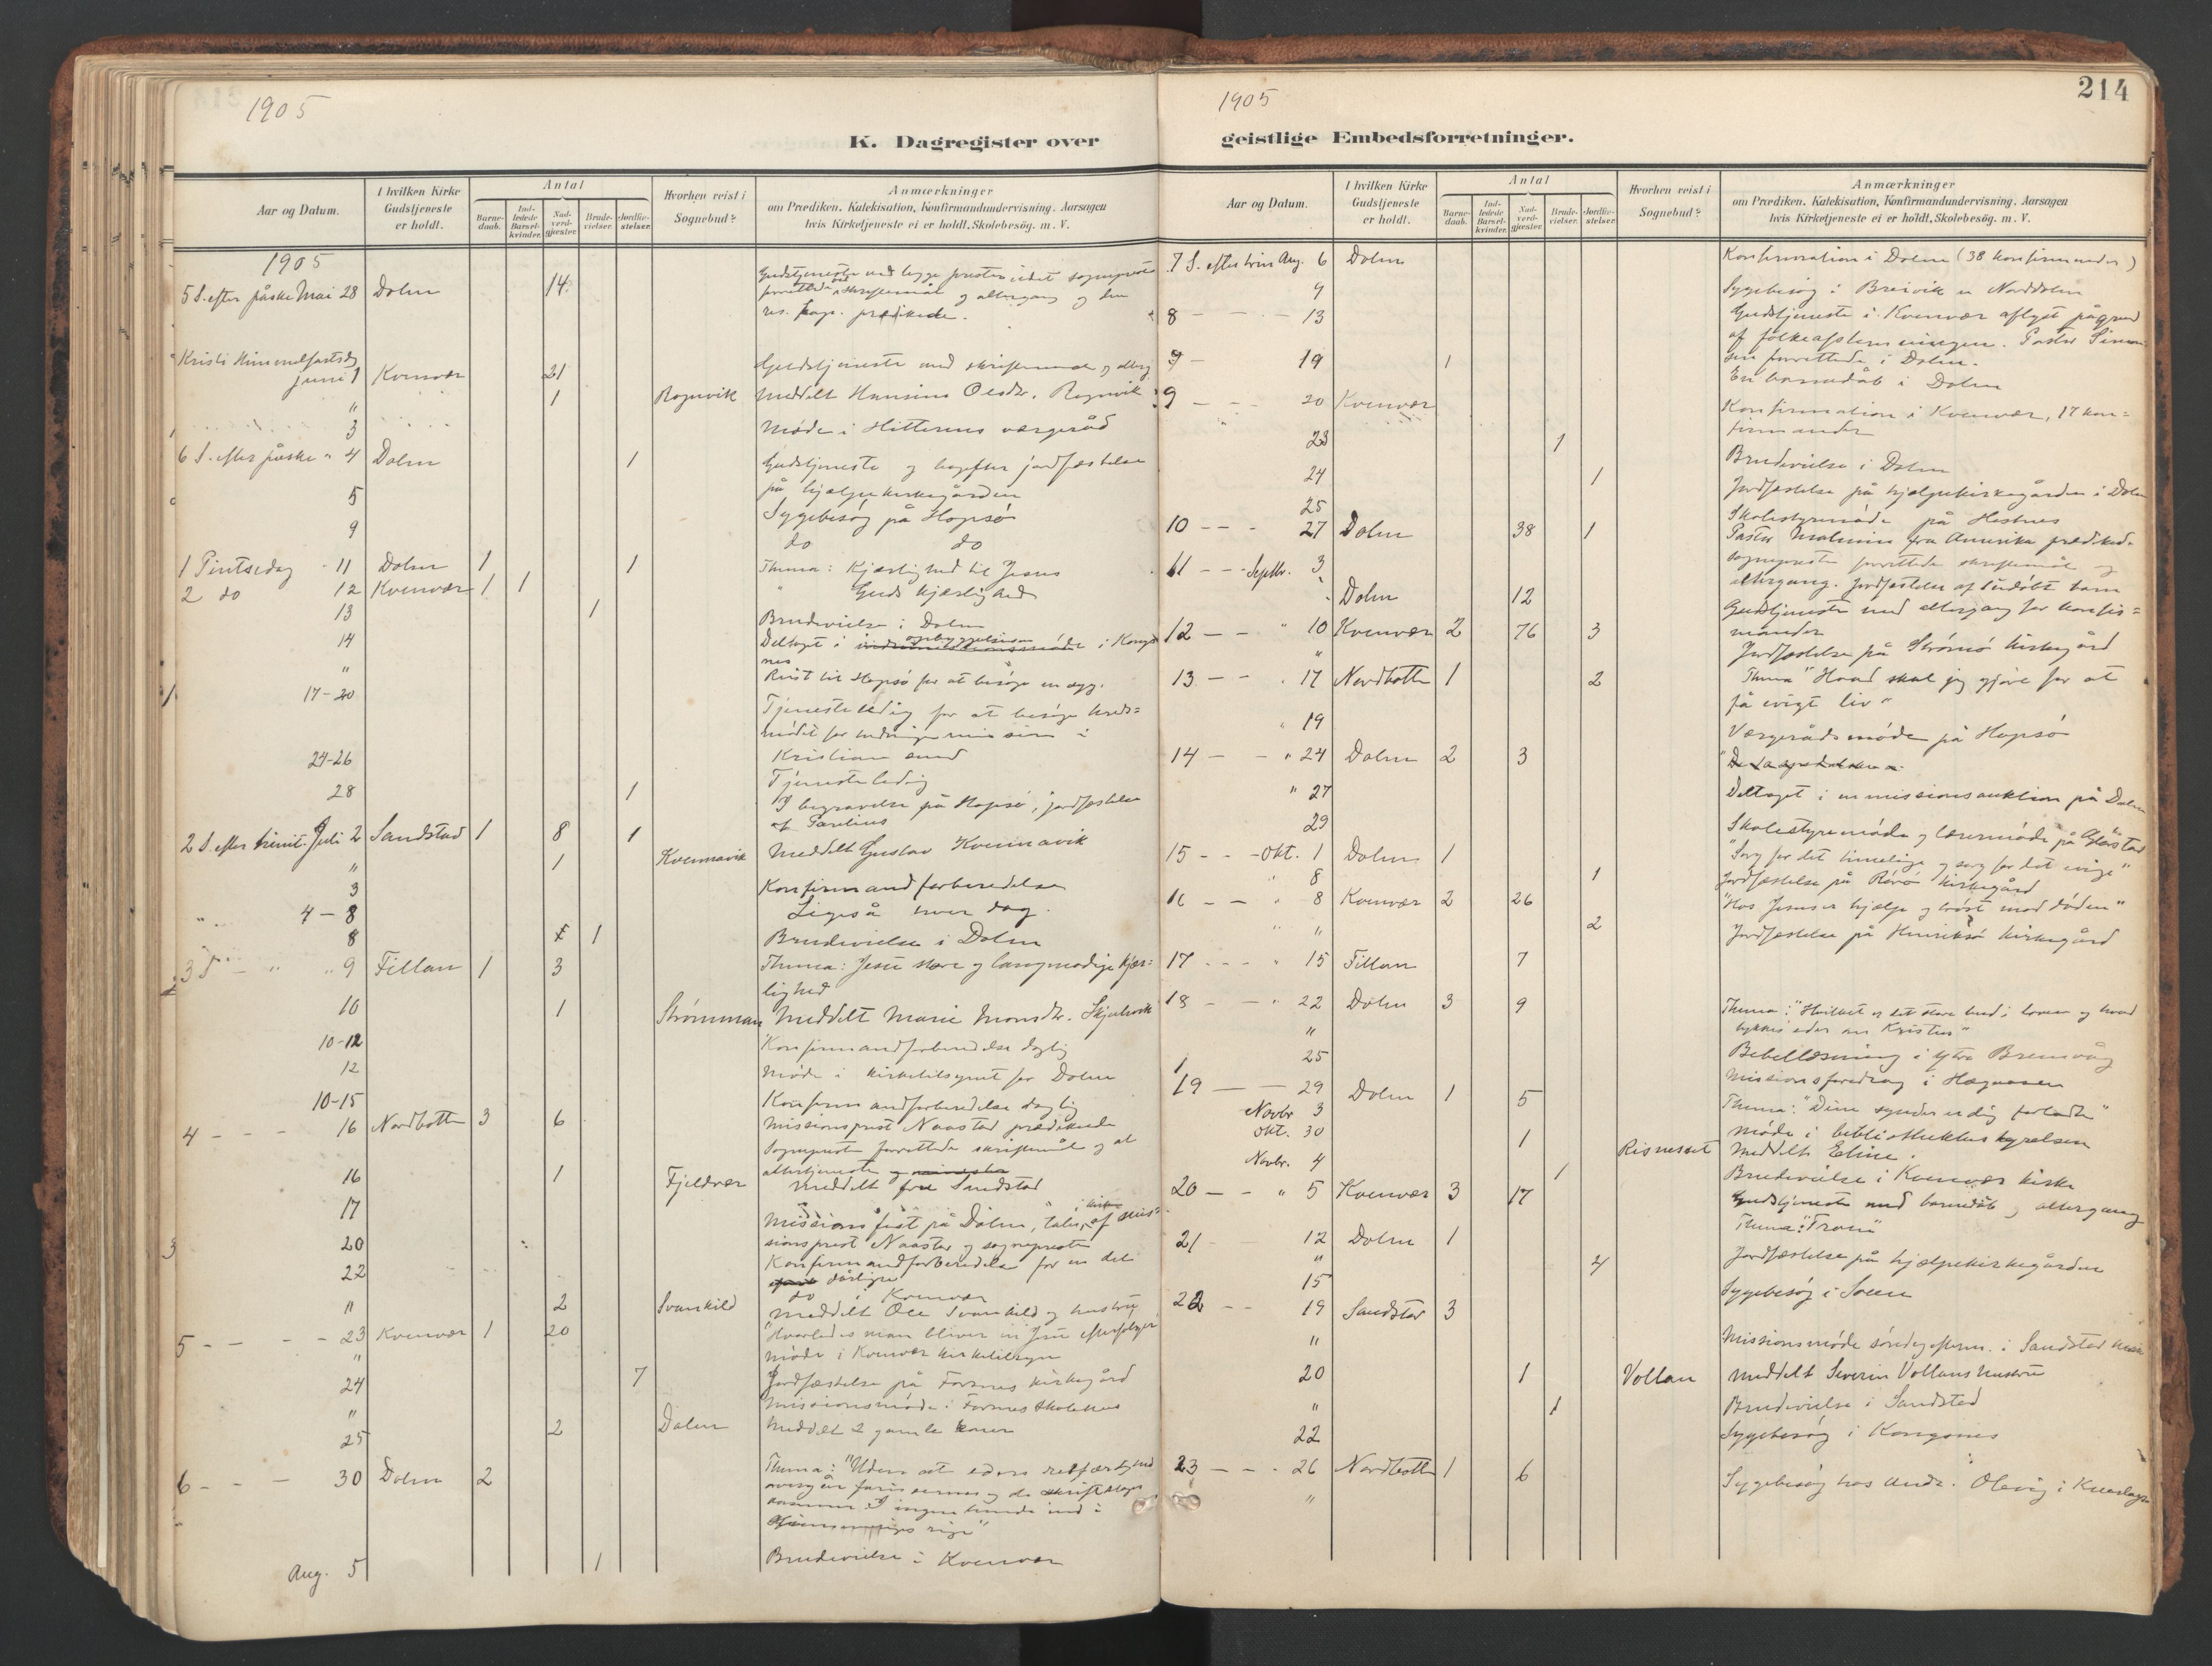 1905
K. Dagregister over
Aar og Datum.
I hvilken Kirke Gudstjeneste er holdt.
Antal
Barne-daab.
Ind-ledede Barsel-kvinder.
Nad-verd-gjæster.
Brude-vielser.
Jordfæ-stelser.
Hvorhen reist i Sognebud?
Anmærkninger
om Prædiken. Katekisation, Konfirmandundervisning. Aarsagen
hvis Kirketjeneste ei er holdt. Skolebesög. m. V.
1905
5 S. efter påske Mai 28 Dolm 14 Gudstjeneste med begge prester idet sognepresten
forrettede ved skriftemål og altergang og den
res. kap. prædikede.
Kristi Himmelfartsdag
juni 1 Kvenvær 21 Gudstjeneste med skriftemål og alterg
" 1 Rognvik Meddelt Hansine Olsdtr. Rognvik
3 Møde i Hitterens værgeråd
6 S. efter påske " 4 Dolm 1 Gudstjeneste og bagefter jordfæstelse
på hjælpekirkegården
5 Sygebesøg på Hopsø
9 do do
1 Pintsedag 11 Dolm 1 1 Thema: Kjærlighed til Jesus
2 do 12 Kvenvær 1 1 " Guds kjærlighed
13 1 Brudevielse i Dolm
14 Deltaget i opbyggelsesmøde i Kongs
nes
" Reist til Hopsø for at besøge en syg.
17-20 Tjenesteledig for at besøge kreds=
mødet for indremissionen i
Kristiansund
24-26 Tjenesteledig
28 1 I begravelse på Hopsø, jordfæstelse
af Parelius
2 S. efter trinit. Juli 2 Sandstad 1 8 1
" 1 Kvennavik Meddelt Gustav Kvennavik
3 Konfirmandforberedelse
4-8 Ligeså hver dag.
8 1 Brudevielse i Dolm
3 S - " " 9 Fillan 1 3 Thema: Jesu store og langmodige kjær=
lighed
10 1 Strømman Meddelt Marie Monsdtr. Skjelvik
10-12 Konfirmandforberedelse daglig
12 Møde i kirketilsynet for Dolm
10-15 Konfirmandforberedelse daglig
4 - - - 16 Nordbotn 3 6 Missionsprest Naastad prædikede
Sognepresten forrettede skriftemål og al
altertjeneste og
16 1 Fjeldvær Meddelt fru Sandstad
17 Missionsfest på Dolm, taler i kirken af mis=
sionsprest Naastad og sognepresten
20 Konfirmandforberedelse for en del
dårligere
22 do i Kvenvær
" 2 Svankild Meddelt Ole Svankild og hustru
5 - - - - 23 Kvenvær 1 20 "Hvorledes man bliver en Jesu efterfølger
" Møde i Kvenvær kirketilsyn
24 7 Jordfæstelse på Forsnes kirkegård
" Missionsmøde i Forsnes skolehus
25 2 Dolm Meddelt 2 gamle koner
6 - - - 30 Dolm 2 Thema: "Uden at eders retfærdighed
overgår farisæernes og de skriftkloges
kommer I ingenlunde ind i
Himmeriges rige"
Aug. 5 1 Brudevielse i Kvenvær
1905
214
geistlige Embedsforretninger.
Aar og Datum.
I hvilken Kirke Gudstjeneste er holdt.
Antal
Barne-daab.
Ind-ledede Barsel-kvinder.
Nad-verd-gjæster.
Brude-vielser.
Jordfæ-stelser.
Hvorhen reist i Sognebud?
Anmærkninger
om Prædiken. Katekisation, Konfirmandundervisning. Aarsagen
hvis Kirketjeneste ei er holdt, Skolebesög. m. V.
7 S. efter trin Aug. 6 Dolm Konfirmation i Dolm (38 konfirmander)
9 Sygebesøg i Breivik i Norddolm
8 - - - 13 Gudstjeneste i Kvenvær aflyst på grund
af folkeafstemningen. Pastor Simon
sen forrettede i Dolm.
9 - 19 1 En barnedåb i Dolm
9 - - - 20 Kvenvær Konfirmation i Kvenvær, 17 kon=
firmander
23 1 Brudevielse i Dolm
24 1 Jordfæstelse på hjælpekirkegården i Dolm
25 Skolestyremøde på Hestnes
10 - - - 27 Dolm 38 1 Pastor Malmin fra Amerika prædikede.
sognepresten forrettede skriftemål og
altergang. Jordfæstelse af 1 udøbt barn
11 - - - Septbr. 3 Dolm 12 Gudstjeneste med altergang for konfir=
mander
12 - - " 10 Kvenvær 2 76 3 Jordfæstelse på Strømø kirkegård
"
13 - - . 17 Nordbotn 1 2 Thema "Hvad skal jeg gjøre for at
få evigt liv"
" 19 Værgerådsmøde på Hopsø
14 - - " 24 Dolm 2 3
" 27 Deltaget i en missionsauktion på Dolm
29 Skolestyremøde og lærermøde på
15 - - - Okt. 1 Dolm 1 "Sorg for det timelige og sorg for det evige"
" 8 1 Jordfæstelse på kirkegård
16 - - " 8 Kvenvær 2 26 "Hos Jesus er hjælp og trøst mod døden"
" " 2 Jordfæstelse på Henriksø kirkegård
17 - - - " 15 Fillan 7
18 - - " 22 Dolm 3 9 Thema: "Hvilket er det store bud i loven og hvad
tykkes eder om Kristus"
" Bibellæsning i Ytre Bremvåg
25 Missionsforedrag i Hagaasen
19 - - 29 Dolm 1 5 Thema: "Dine synder er dig forladte"
Novbr 3 Møde i bibliotheksbestyrelsen
Okt. 30 1 Risnesset Meddelt Eline
Novbr. 4 1 Brudevielse i Kvenvær kirke
20 - - " 5 Kvenvær 3 17 Gudstjeneste med barnedåb og altergang
Thema: "Troen"
21 - 12 Dolm 1
" 4 Jordfæstelse på hjælpekirkegården
15 Sygebesøg i Soem
22 - - 19 Sandstad 3
" Missionsmøde søndag efterm. i Sandstad
20 1 Vollan Meddelt Severin Vollans hustru
" 1 Brudevielse i Sandstad
22 Sygebesøg i Kongsnes
23 - - . 26 Nordbotn 1 6
" Sygebesøg hos Andr. Olsvig i